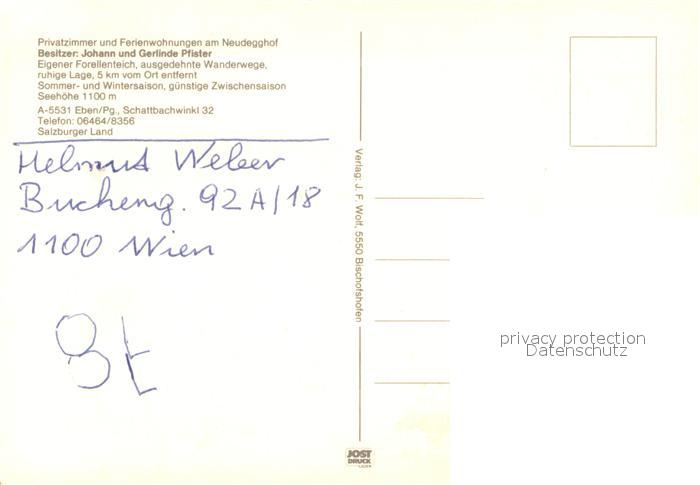 Privatzimmer und Ferienwohnungen am Neudegghof
Besitzer: Johann und Gerlinde Pfister
Eigener Forellenteich, ausgedehnte Wanderwege,
ruhige Lage, 5 km vom Ort entfernt
Sommer- und Wintersaison, günstige Zwischensaison
Seehöhe 1100 m
A-5531 Eben/Pg., Schattbachwinkl 32
Telefon: 06464/8356
Salzburger Land
Helmut Weber
Bucheng. 92A/18
1100 Wien
Verlag: J. F. Wolf, 5550 Bischofshofen
privacy protection
Datenschutz
JOST
DRUCK